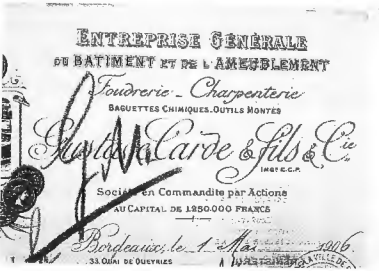 ENTREPRISE GÉNÉRALE
DU BATIMENT ET DE L'AMEUBLEMENT
Foudrerie - Charpenterie
BAGUETTES CHIMIQUES. OUTILS MONTÉS
Gustave Carde & Fils & Cie
Société en Commandite par Actions
AU CAPITAL DE 1250000 FRANCS
Bordeaux, le 1 Mai 1906
33, QUAI DE QUEYRIES
LA VILLE DE